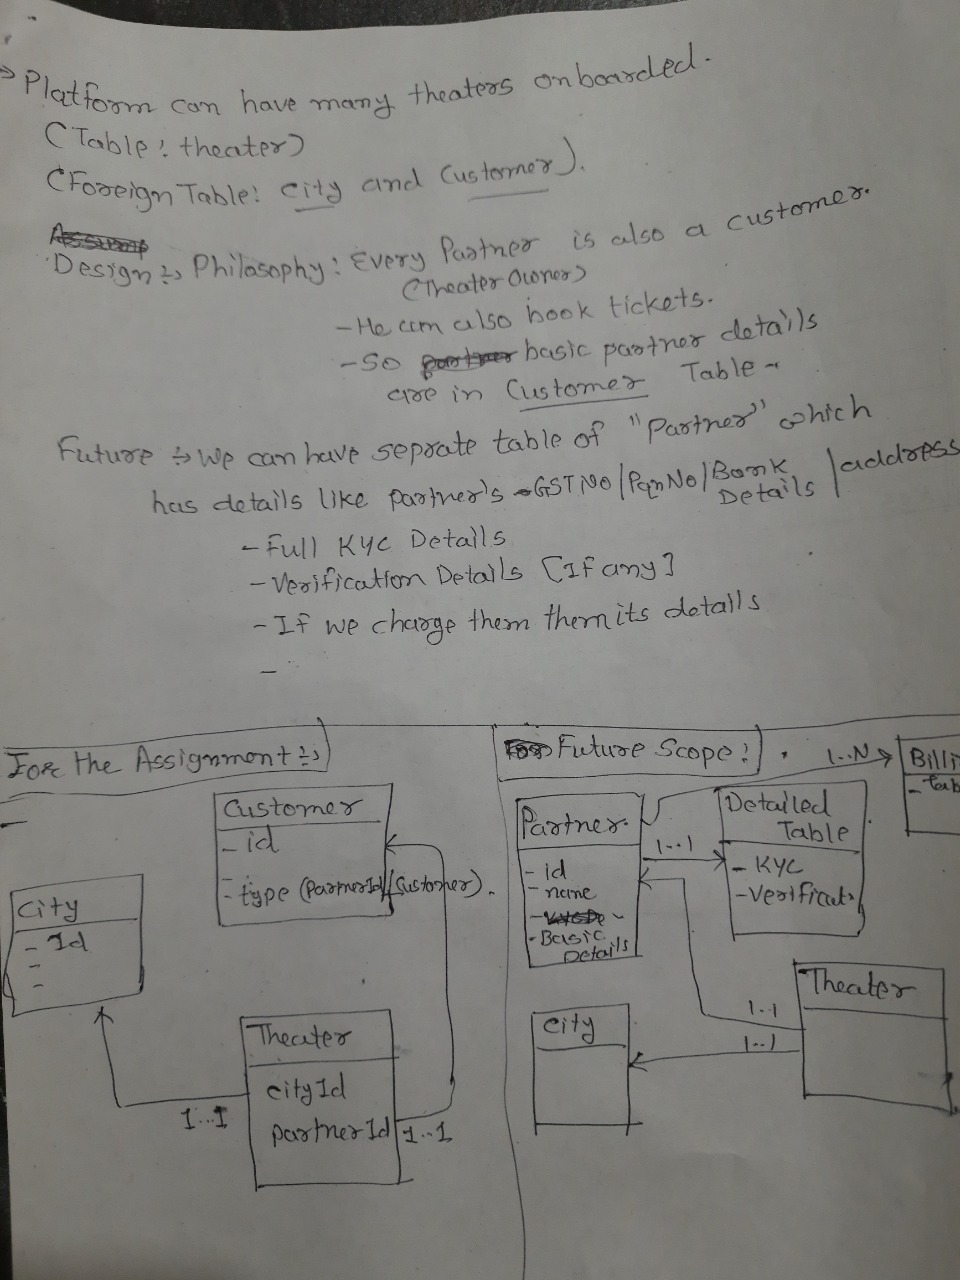 → Platform can have many theaters onboarded.
(Table: theater)
(Foreign Table: City and Customer).
Design :→ Philosophy: Every Partner is also a customer.
(Theater Owner)
- He can also book tickets.
- So basic partner details
are in Customer Table -
Future :→ We can have seprate table of "Partner" which
has details like partner's GST NO/Pan No/Bank Details/address
- Full KYC Details
- Verification Details [If any]
- If we charge them them its details
-
For the Assignment :→
Customer
- id
- type (PartnerId/Customer).
City
- Id
-
-
Theater
cityId
partnerId
1..1
1..1
Future Scope:
1..N
Billi
- Tab
Partner
- id
- name
- Basic
Details
1..1
Detailed
Table
- KYC
- Verificat
Theater
1..1
1..1
City